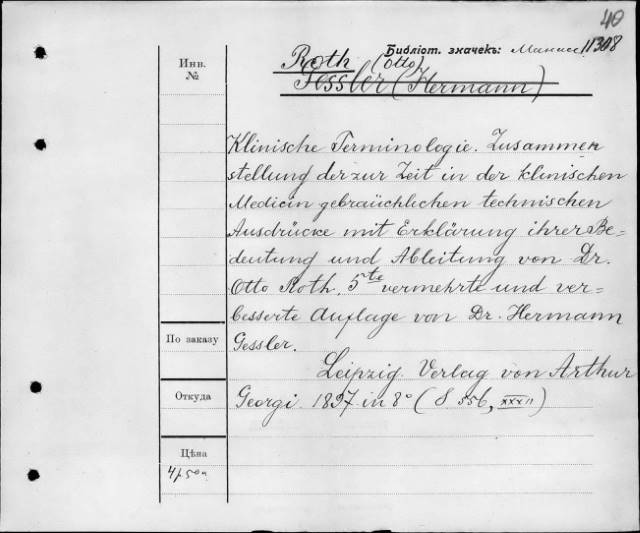 40
Библіот. значекъ: 11308
Инв.
№
Roth (Otto)
Gessler (Hermann)
Klinische Terminologie. Zusammen
stellung der zur Zeit in der klinischen
Medicin gebraüchlichen technischen
Ausdrücke mit Erklärung ihrer Be-
deutung und Ableitung von Dr.
Otto Roth. 5te vermehrte und ver-
besserte Auflage von Dr. Hermann
По заказу
Gessler.
Leipzig. Verlag von Arthur
Откуда
Georgi. 1897. in 8° (S 556, XXXII)
Цѣна